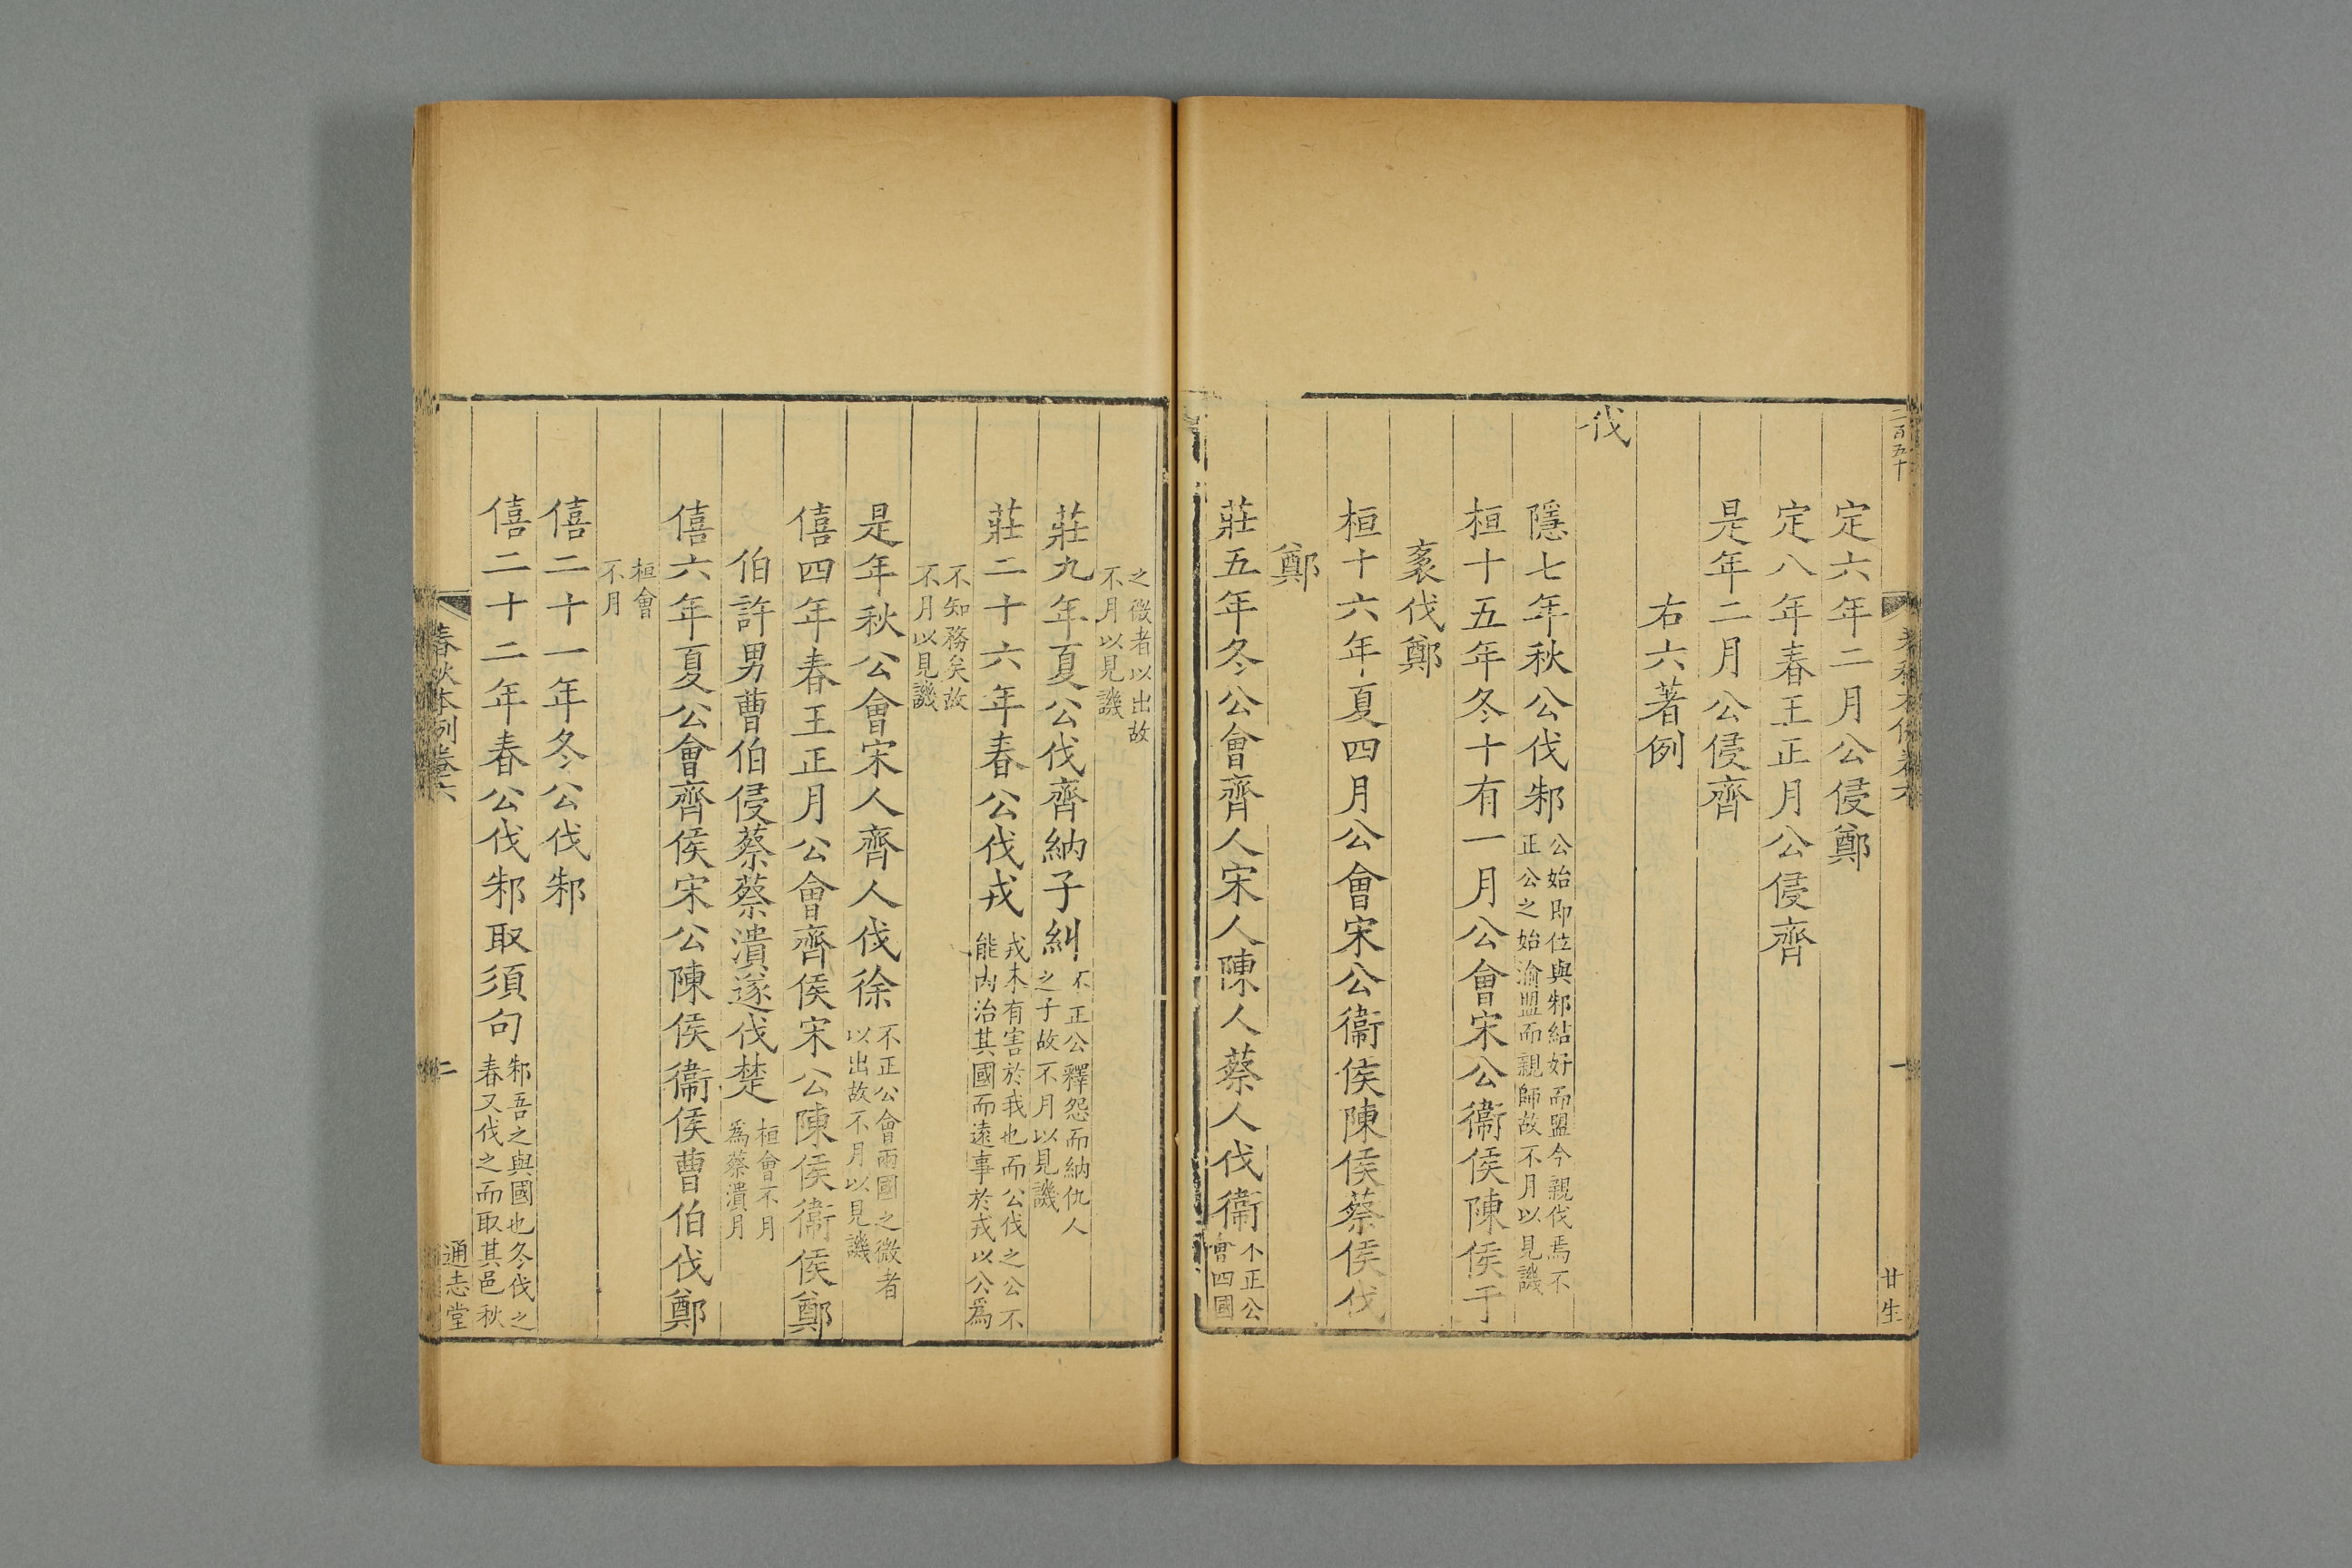 二百五十
定六年二月公侵鄭
定八年春王正月公侵齊
是年二月公侵齊
右六著例
伐
隱七年秋公伐邾公始即位與邾結好而盟今親伐焉不正公之始渝盟而親師故不月以見譏
桓十五年冬十有一月公會宋公衞侯陳侯于
袲伐鄭
桓十六年夏四月公會宋公衞侯陳侯蔡侯伐
鄭
莊五年冬公會齊人宋人陳人蔡人伐衞不正公會四國
一
廿生
之微者以出故不月以見譏
莊九年夏公伐齊納子糾不正公釋怨而納仇人之子故不月以見譏
莊二十六年春公伐戎戎未有害於我也而公伐之公不能內治其國而遠事於戎以公爲
不知務矣故不月以見譏
是年秋公會宋人齊人伐徐不正公會兩國之微者以出故不月以見譏
僖四年春王正月公會齊侯宋公陳侯衞侯鄭
伯許男曹伯侵蔡蔡潰遂伐楚桓會不月爲蔡潰月
僖六年夏公會齊侯宋公陳侯衞侯曹伯伐鄭
桓會不月
僖二十一年冬公伐邾
僖二十二年春公伐邾取須句邾吾之與國也冬伐之春又伐之而取其邑秋
春秋本例卷六
二
通志堂